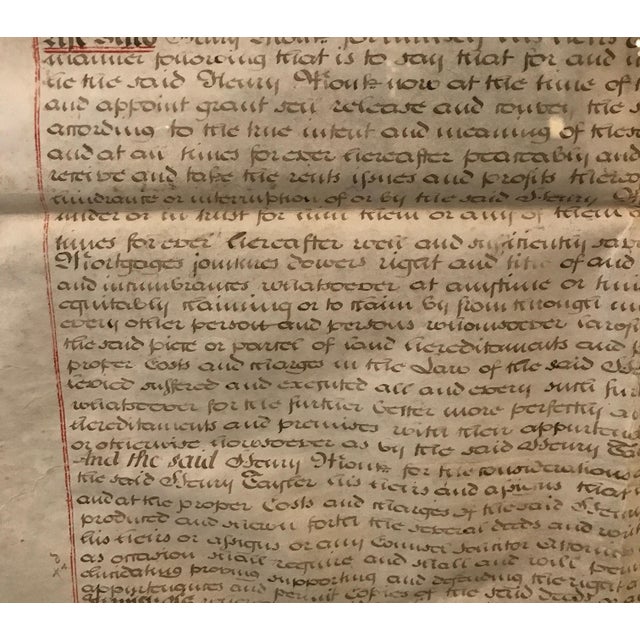 the said Henry Monk for himself his heirs
manner following that is to say that for and
he the said Henry Monk now at the time of
and appoint grant sell release and convey the s
according to the true intent and meaning of these
and at all times for ever hereafter peaceably and
receive and take the rents issues and profits thereo
hindrance or interruption of or by the said Henry
under or in trust for him them or any of them
times for ever hereafter well and sufficiently sav
Mortgages jointures dowers right and title of and
and incumbrances whatsoever at anytime or tim
equitably claiming or to claim by from through
every other person and persons whomsoever
the said piece or parcel of land hereditaments and p
proper Costs and charges in the Law of the said
levied suffered and executed all and every such fur
whatsoever for the further better more perfectly
hereditaments and premises with their appurten
or otherwise howsoever as by the said Henry
And the said Henry Monk for the considerations
the said Henry Tayler his heirs and assigns that
and at the proper Costs and charges of the said Henry
produced and shewn forth the several deeds and
his heirs or assigns or any Counsel Solicitor Attorne
as occasion shall require and shall and will
elucidating proving supporting and defending the right
appurtenances and permit copies of the said deeds